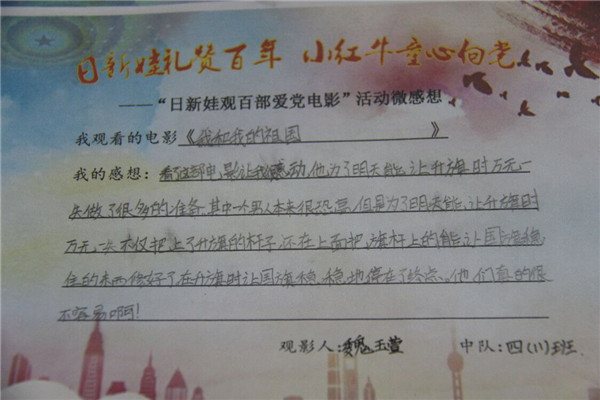 日新娃礼赞百年 小红牛童心向党
——“日新娃观百部爱党电影”活动微感想
我观看的电影《我和我的祖国》
我的感想：看这部电影让我感动他为了明天能让升旗时万无一
失做了很多的准备.其中一个男人本来很恐高但是为了明天能让升旗时
万无一失不仅把上了升旗的杆子还在上面把旗杆上的能让国旗稳
住的东西修好了在升旗时让国旗稳稳地停在了终点。他们真的很
不容易啊！
观影人：魏玉萱 中队：四（11）班